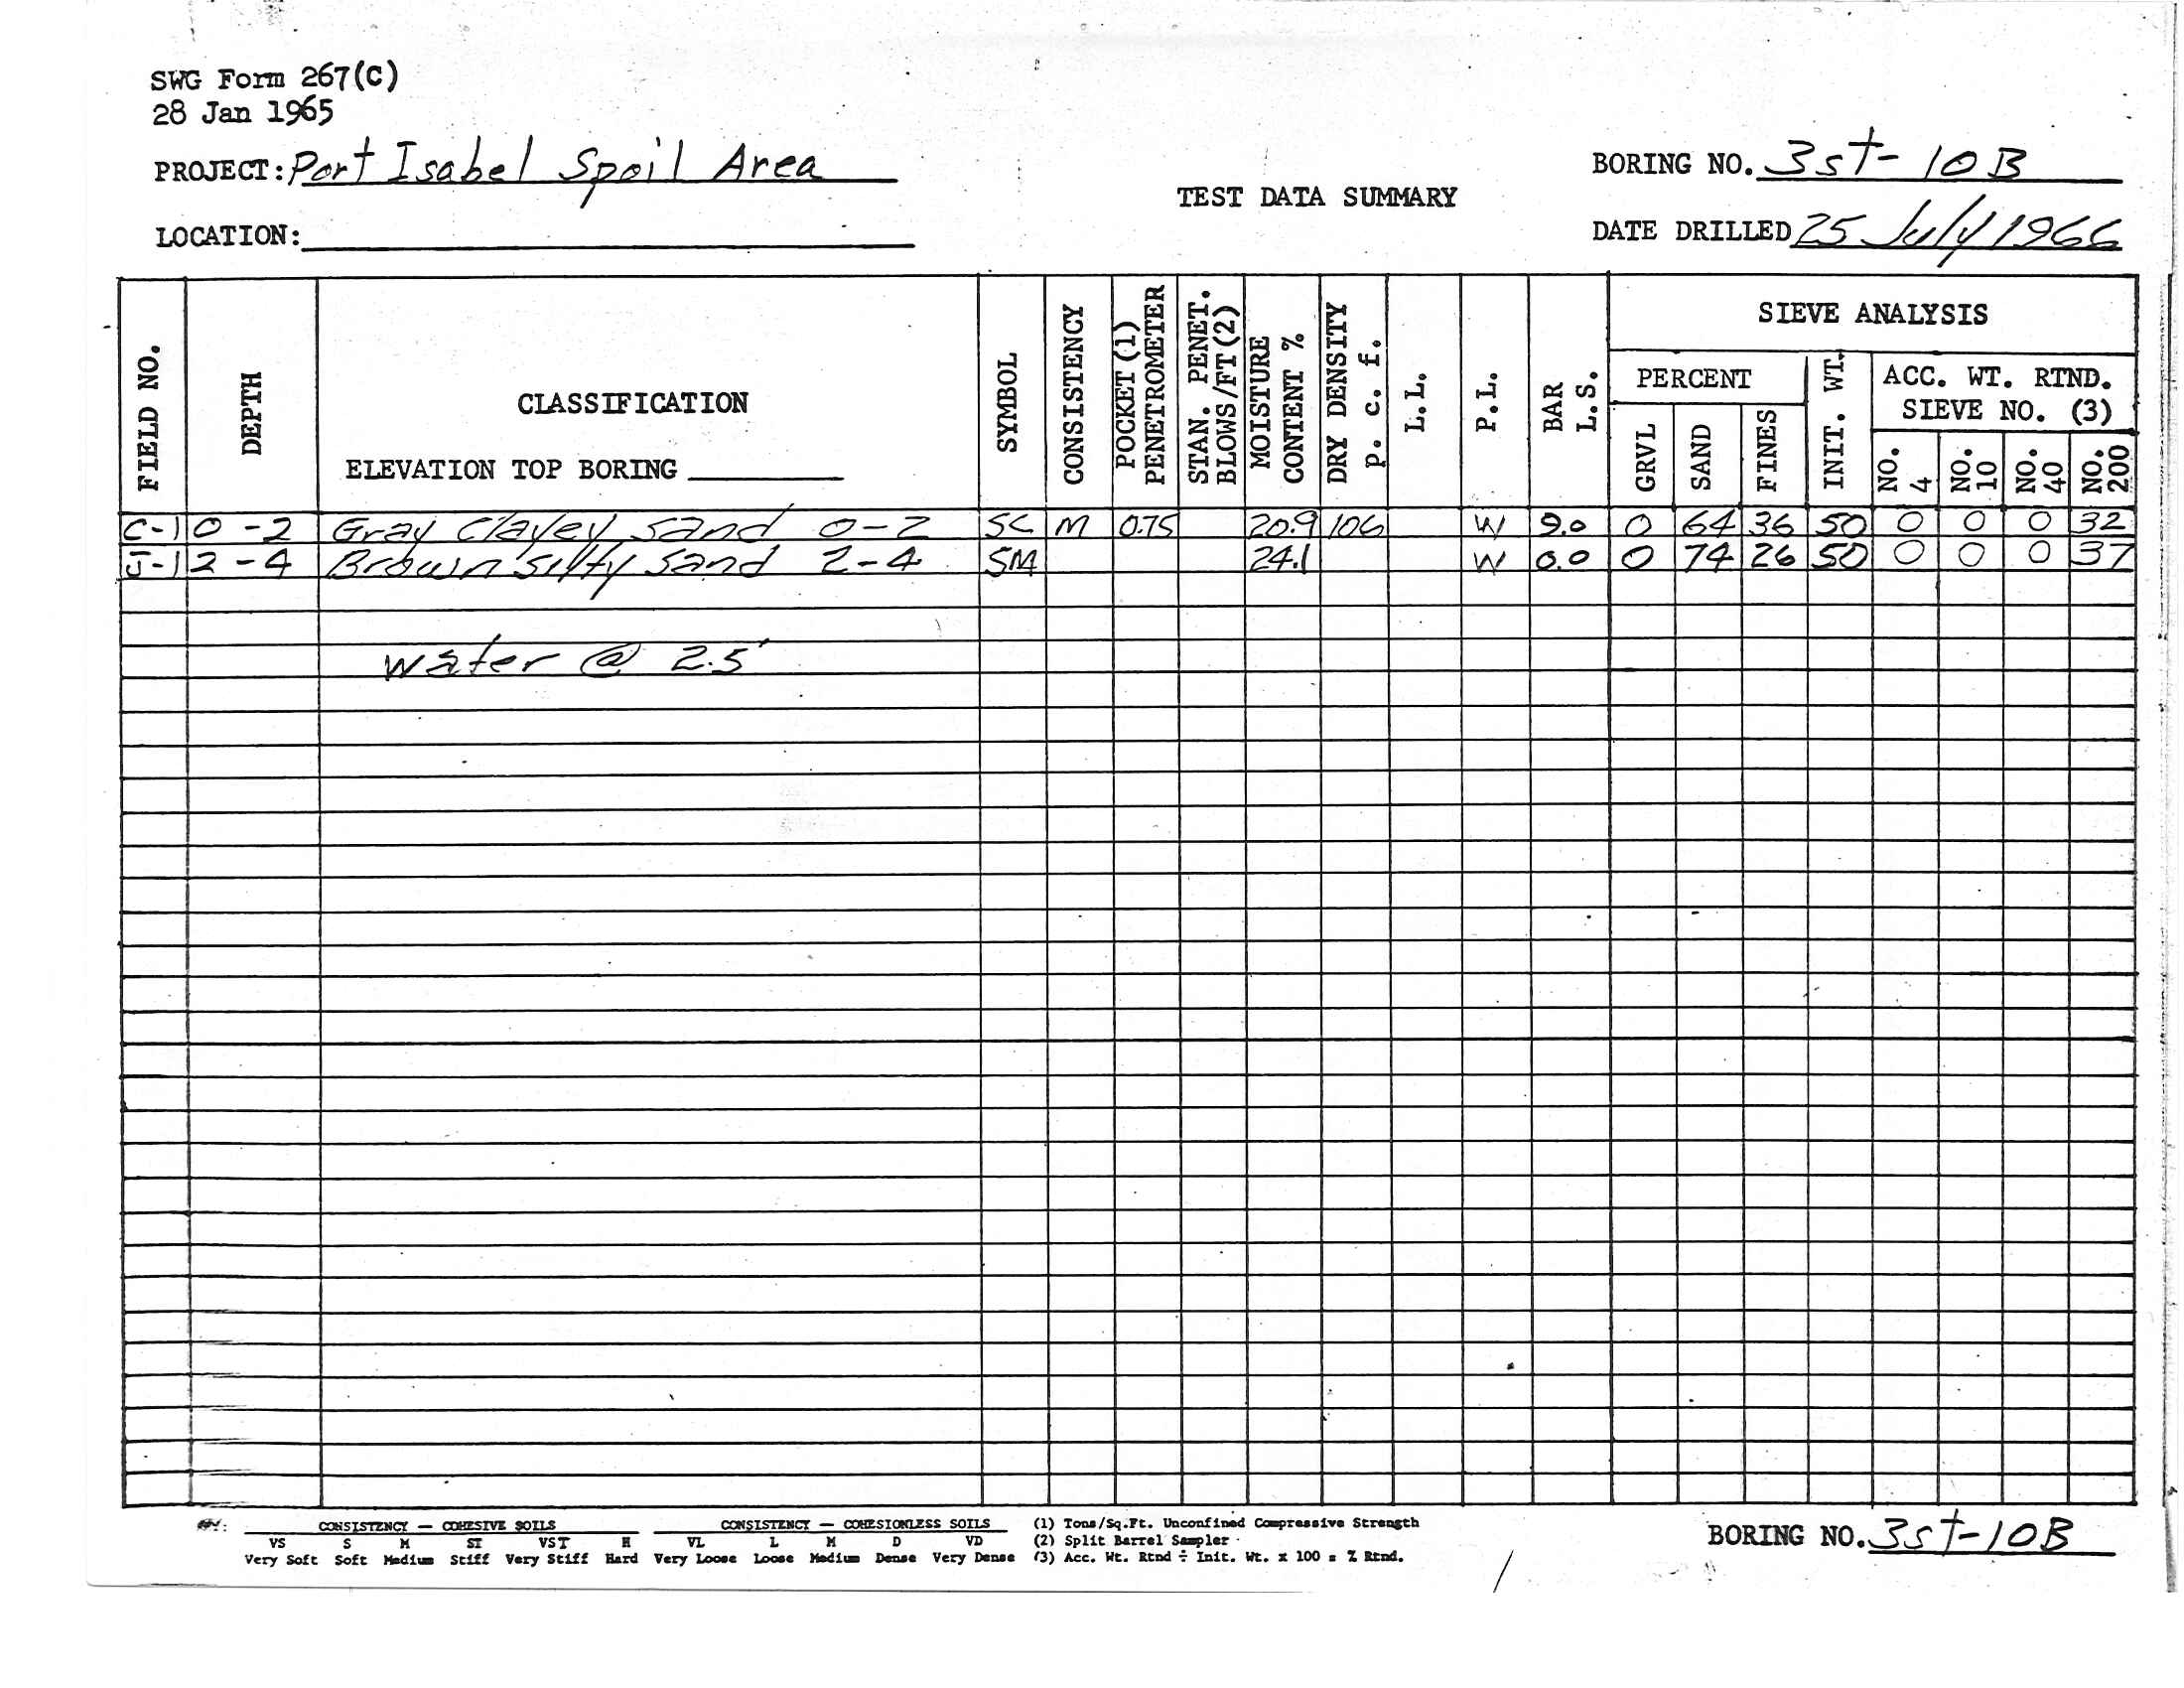 SWG Form 267(C)
28 Jan 1965
PROJECT: Port Isabel Spoil Area
BORING NO. 3st-10B
TEST DATA SUMMARY
LOCATION:
DATE DRILLED 25 July 1966
FIELD NO.
DEPTH
CLASSIFICATION
ELEVATION TOP BORING
SYMBOL
CONSISTENCY
POCKET (1)
PENETROMETER
STAN. PENET.
BLOWS/FT (2)
MOISTURE
CONTENT %
DRY DENSITY
p. c. f.
L.L.
P.L.
BAR
L.S.
SIEVE ANALYSIS
PERCENT
GRVL
SAND
FINES
INIT. WT.
ACC. WT. RTND.
SIEVE NO. (3)
NO. 4
NO. 10
NO. 40
NO. 200
C-1 0-2 Gray Clayey sand 0-2 SC M 0.75 20.9 106 W 9.0 0 64 36 50 0 0 0 32
J-1 2-4 Brown silty sand 2-4 SM 24.1 W 0.0 0 74 26 50 0 0 0 37
water @ 2.5'
CONSISTENCY — COHESIVE SOILS
VS S M ST VST H
Very Soft Soft Medium Stiff Very Stiff Hard
CONSISTENCY — COHESIONLESS SOILS
VL L M D VD
Very Loose Loose Medium Dense Very Dense
(1) Tons/Sq.Ft. Unconfined Compressive Strength
(2) Split Barrel Sampler
(3) Acc. Wt. Rtnd ÷ Init. Wt. x 100 = % Rtnd.
BORING NO. 3st-10B